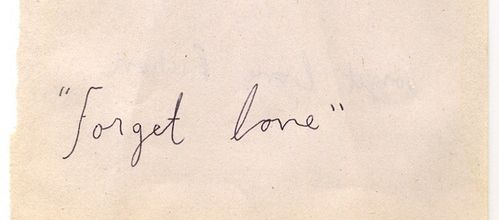 "Forget love"